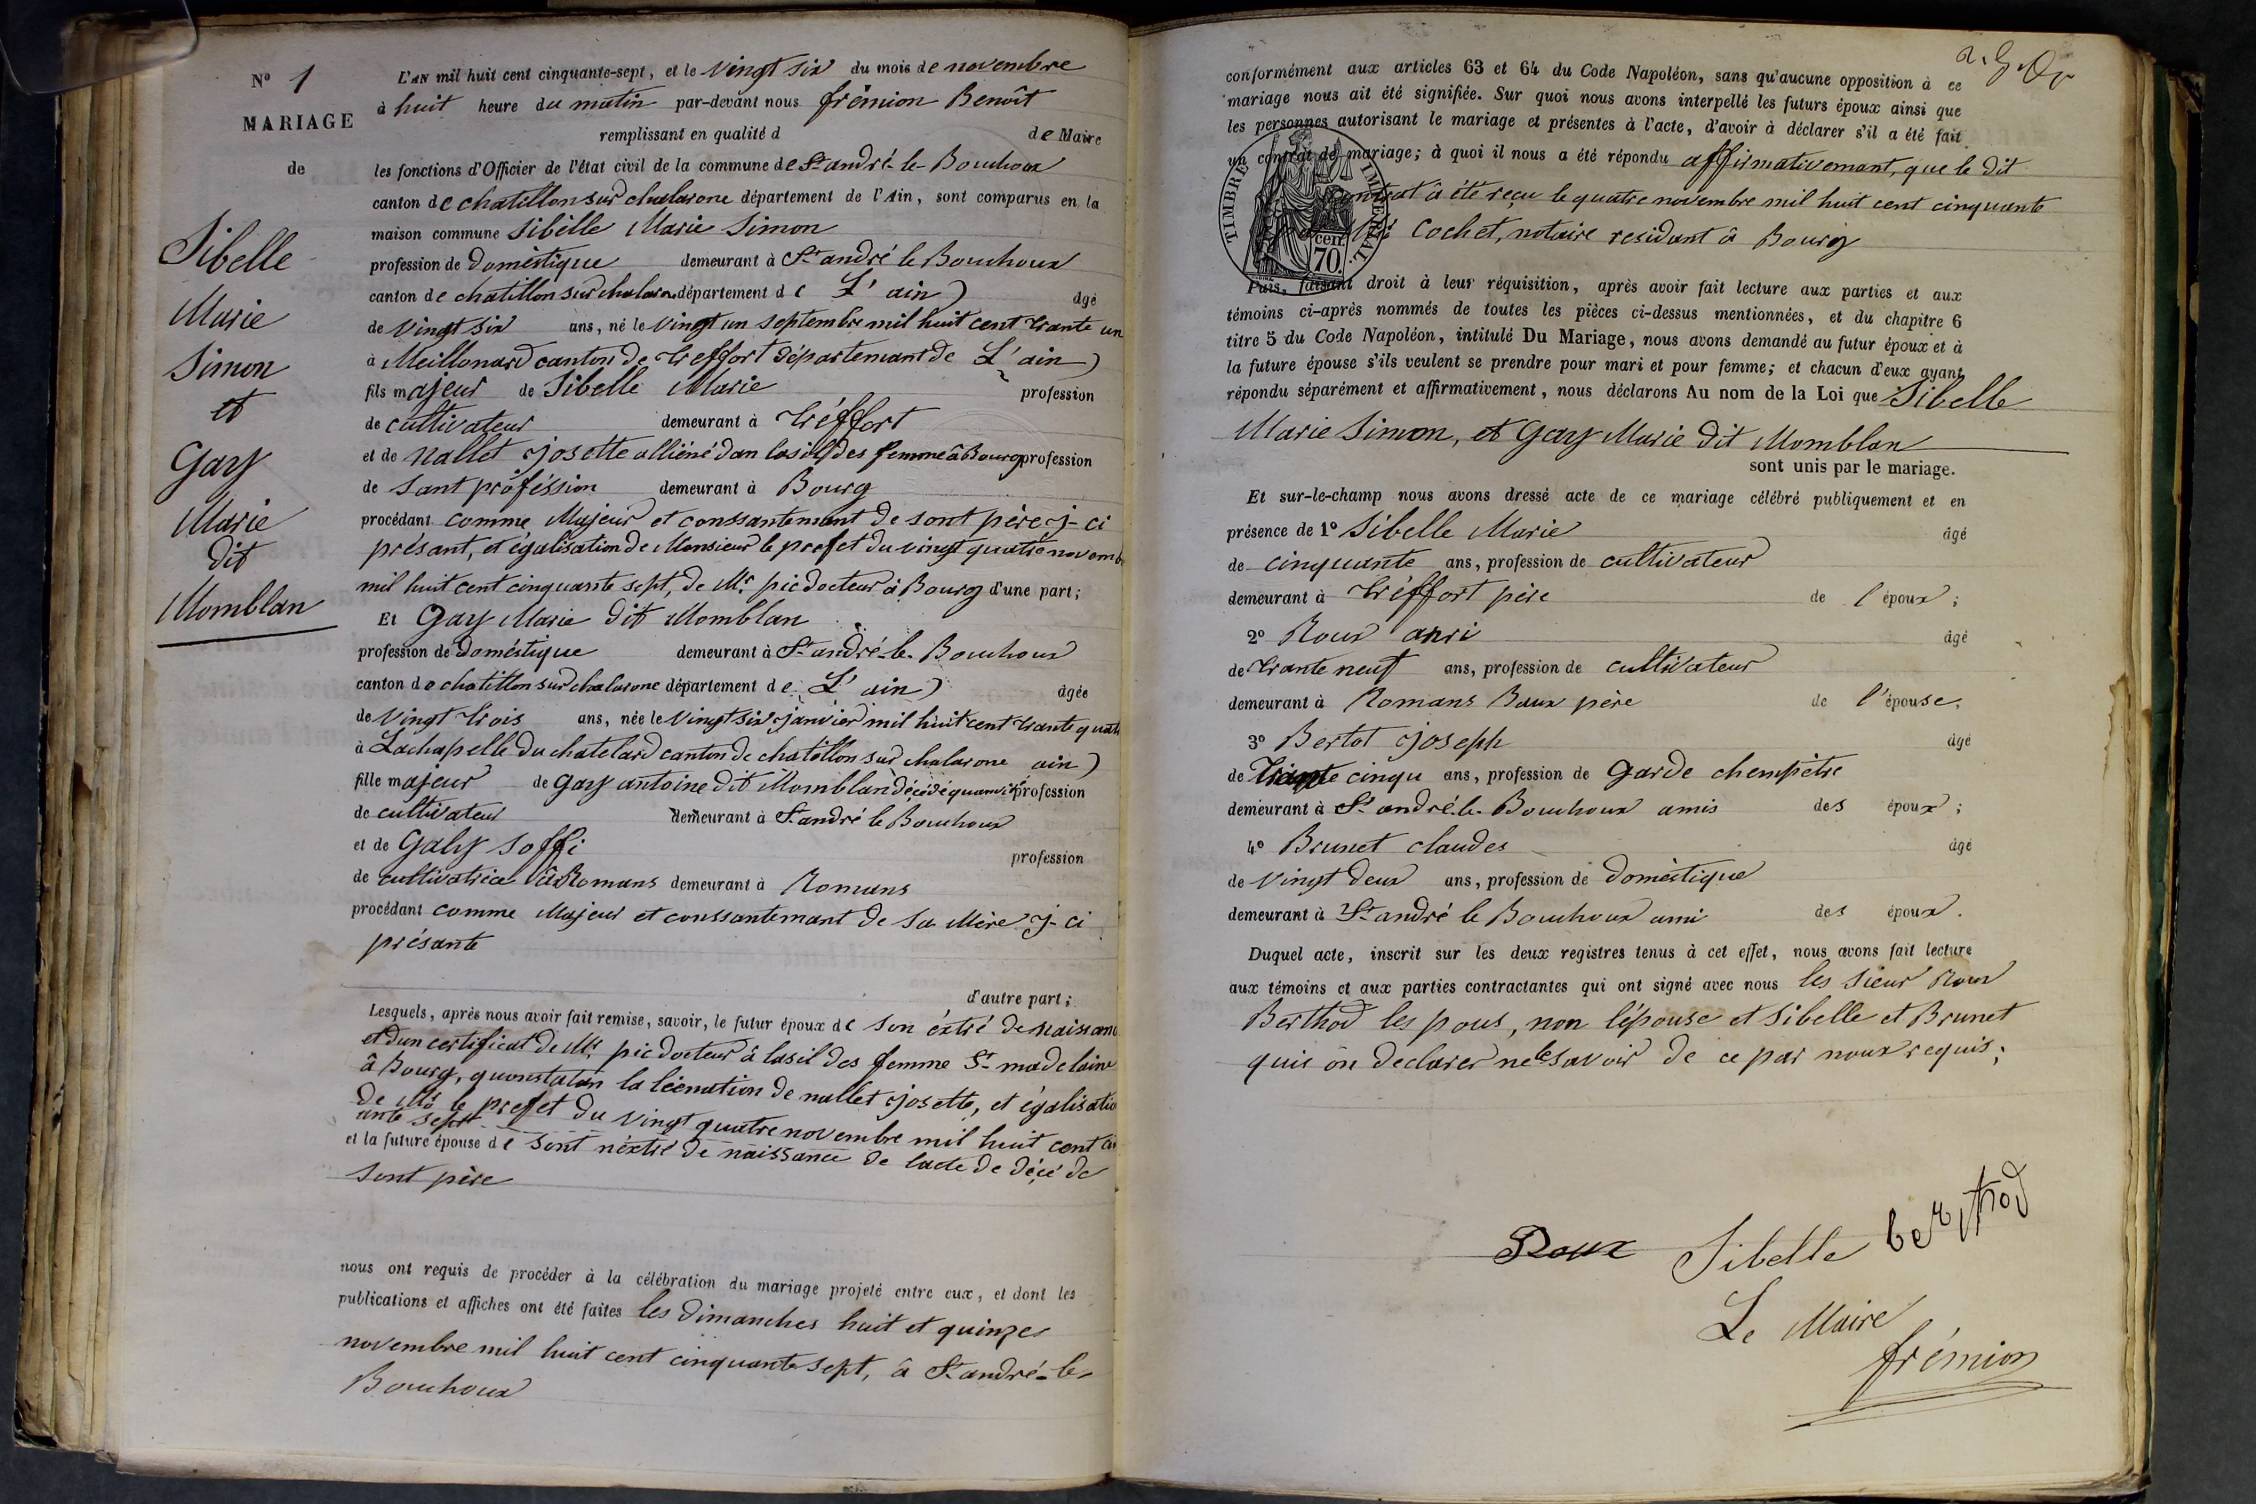 N° 1
MARIAGE
de
Sibelle
Marie
Simon
et
Gay
Marie
dit
Momblan
L'AN mil huit cent cinquante-sept, et le vingt six du mois de novembre
à huit heure du matin par-devant nous frémion Benoît
remplissant en qualité d de Maire
les fonctions d'Officier de l'état civil de la commune de St andré-le-Bouchoux
canton de chatillon sur chalarone département de l'Ain, sont comparus en la
maison commune Sibelle Marie Simon
profession de doméstique demeurant à St andré le Bouchoux
canton de chatillon sur chalaron département de L'ain) âgé
de vingt six ans, né le vingt un septembre mil huit cent trante un
à Meillonard canton de treffort département de L'ain)
fils majeur de Sibelle Marie profession
de cultivateur demeurant à tréffort
et de nallet josette alliéné dan lasil des femme à Bourg profession
de sant proféssion demeurant à Bourg
procédant comme Majeur et conssantemant de sont père j-ci
présant, et égalisation de Monsieur le prefet du vingt quatre novemb
mil huit cent cinquante sept, de Mr pic docteur à Bourg d'une part;
Et Gay Marie dit Momblan
profession de doméstique demeurant à St andré-le-Bouchoux
canton de chatillon sur chalarone département de L'ain) âgée
de vingt trois ans, née le vingt six janvier mil huit cent trante quat
à Lachapelle du chatelard canton de chatillon sur chalarone ain)
fille majeur de gay antoine dit Momblan décédé profession
de cultivateur demeurant à St andré le Bouchoux
et de Galy soffi profession
de cultivatrice à Romans demeurant à Romans
procédant comme Majeur et conssantemant de sa Mère j-ci
présante
d'autre part;
Lesquels, après nous avoir fait remise, savoir, le futur époux de son éxtré de naissanc
et d'un certificat de Mr pic docteur à lasil des femme St madelaine
à Bourg, quonstatan la liénation de nallet josette, et égalisatio
de Mr le prefet du vingt quatre novembre mil huit cent ci
ante sept
et la future épouse de sont néxtré de naissance de lacte de décé de
sont père
nous ont requis de procéder à la célébration du mariage projeté entre eux, et dont les
publications et affiches ont été faites les dimanches huit et quinze
novembre mil huit cent cinquante sept, à St andré-le-
Bouchoux
conformément aux articles 63 et 64 du Code Napoléon, sans qu'aucune opposition à ce
mariage nous ait été signifiée. Sur quoi nous avons interpellé les futurs époux ainsi que
les personnes autorisant le mariage et présentes à l'acte, d'avoir à déclarer s'il a été fait
un contrat de mariage; à quoi il nous a été répondu affirmativemant, que le dit
contrat à été reçu le quatre novembre mil huit cent cinquante
cochet, notaire residant à Bourg
TIMBRE IMPÉRIAL
70 cen.
Puis, faisant droit à leur réquisition, après avoir fait lecture aux parties et aux
témoins ci-après nommés de toutes les pièces ci-dessus mentionnées, et du chapitre 6
titre 5 du Code Napoléon, intitulé Du Mariage, nous avons demandé au futur époux et à
la future épouse s'ils veulent se prendre pour mari et pour femme; et chacun d'eux ayant
répondu séparément et affirmativement, nous déclarons Au nom de la Loi que Sibelle
Marie Simon, et Gay Marie dit Momblan
sont unis par le mariage.
Et sur-le-champ nous avons dressé acte de ce mariage célébré publiquement et en
présence de 1° Sibelle Marie âgé
de cinquante ans, profession de cultivateur
demeurant à tréffort père de l'époux;
2° Roux anri âgé
de trante neuf ans, profession de cultivateur
demeurant à Romans Baux père de l'épouse;
3° Bertot joseph âgé
de trante cinqu ans, profession de garde chempètre
demeurant à St andré-le-Bouchoux amis des époux;
4° Brunet claudes âgé
de vingt deux ans, profession de doméstique
demeurant à St andré le Bouchoux ami des époux.
Duquel acte, inscrit sur les deux registres tenus à cet effet, nous avons fait lecture
aux témoins et aux parties contractantes qui ont signé avec nous les sieur Roux
Berthod les pous, non l'épouse et Sibelle et Brunet
quis on declarer ne le savoir de ce par noux requis;
Roux Sibelle berthod
Le Maire
frémion